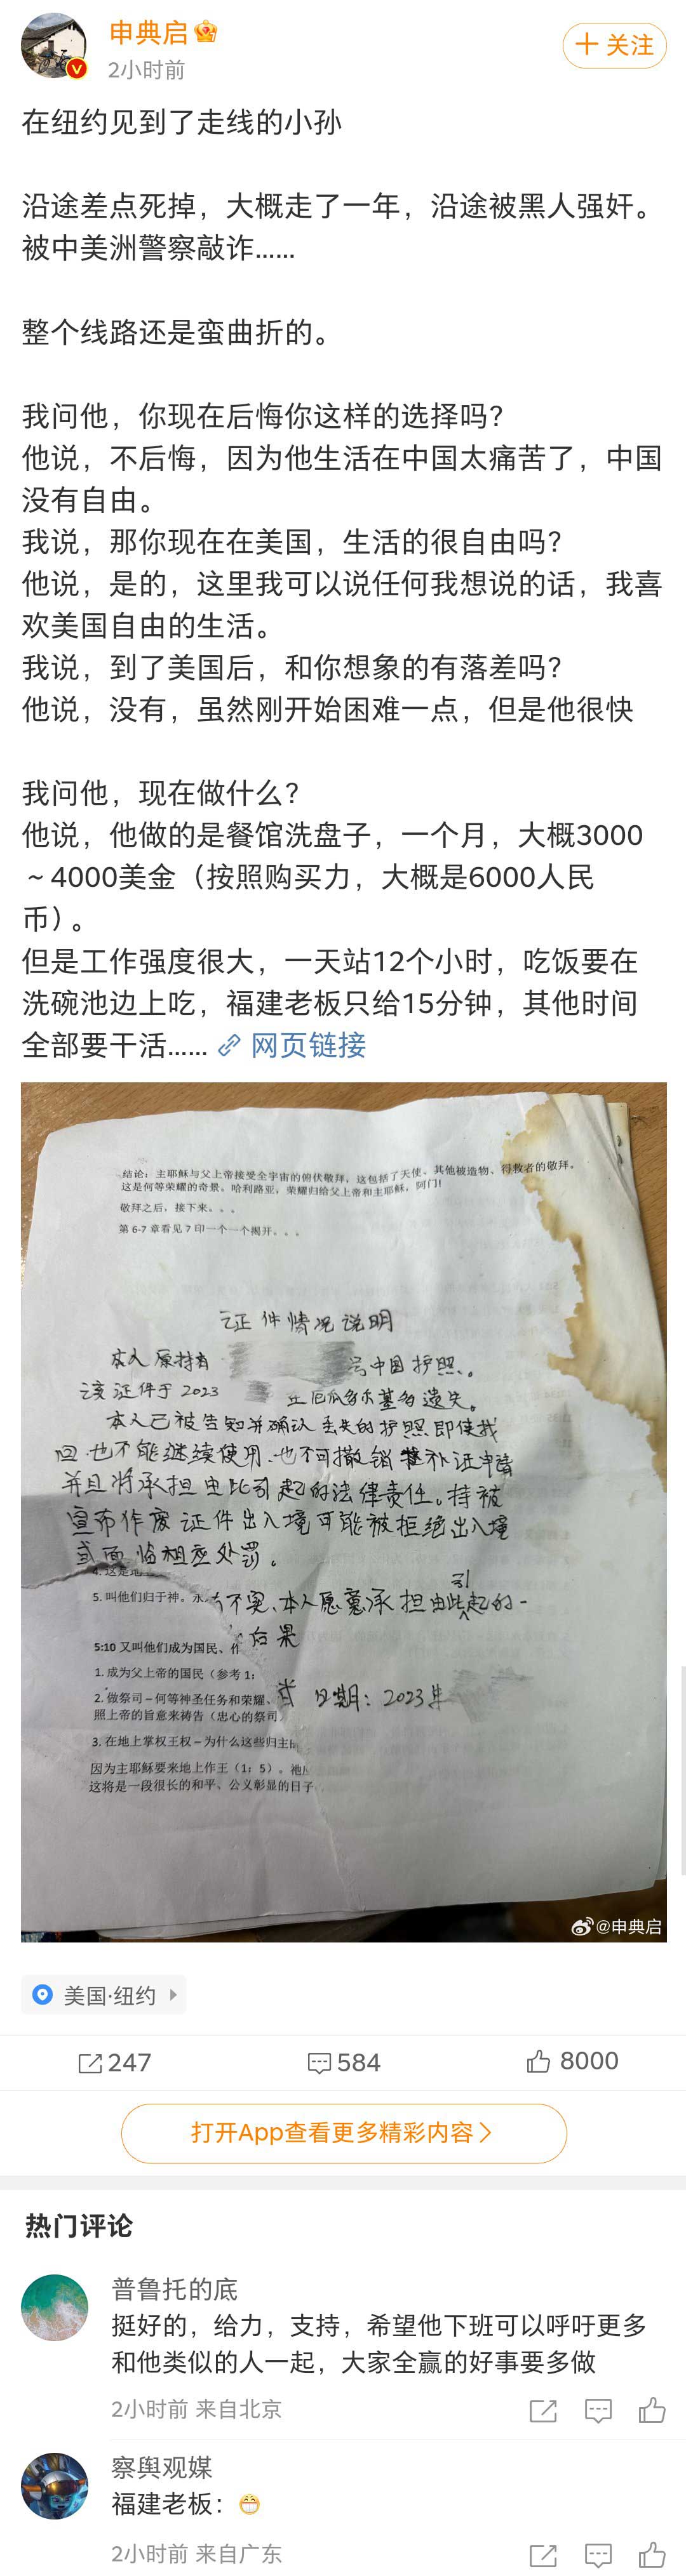 申典启
2小时前
+ 关注
在纽约见到了走线的小孙
沿途差点死掉，大概走了一年，沿途被黑人强奸。
被中美洲警察敲诈......
整个线路还是蛮曲折的。
我问他，你现在后悔你这样的选择吗？
他说，不后悔，因为他生活在中国太痛苦了，中国
没有自由。
我说，那你现在在美国，生活的很自由吗？
他说，是的，这里我可以说任何我想说的话，我喜
欢美国自由的生活。
我说，到了美国后，和你想象的有落差吗？
他说，没有，虽然刚开始困难一点，但是他很快
我问他，现在做什么？
他说，他做的是餐馆洗盘子，一个月，大概3000
～4000美金（按照购买力，大概是6000人民
币）。
但是工作强度很大，一天站12个小时，吃饭要在
洗碗池边上吃，福建老板只给15分钟，其他时间
全部要干活...... 网页链接
结论：主耶稣与父上帝接受全宇宙的俯伏敬拜，这包括了天使、其他被造物、得救者的敬拜。
这是何等荣耀的奇景。哈利路亚，荣耀归给父上帝和主耶稣，阿门！
敬拜之后，接下来。。。
第 6-7 章看见 7 印一个一个揭开。。。
证件情况说明
本人原持有 号中国护照。
该证件于 2023 在厄瓜多尔基多遗失。
本人已被告知并确认丢失的护照即使找
回.也不能继续使用.也不可撤销补证申请
并且将承担由此引起的法律责任。持被
宣布作废证件出入境可能被拒绝出入境
或面临相应处罚。
4. 这是地
5. 叫他们归于神。永 不实、本人愿意承担由此引起的一
后果
5:10 又叫他们成为国民、作
1. 成为父上帝的国民（参考 1:
2. 做祭司－何等神圣任务和荣耀、 日期：2023年
照上帝的旨意来祷告（忠心的祭司
3. 在地上掌权王权－为什么这些归主
因为主耶稣要来地上作王（1：5）。祂
这将是一段很长的和平、公义彰显的日子
@申典启
美国·纽约
247 584 8000
打开App查看更多精彩内容
热门评论
普鲁托的底
挺好的，给力，支持，希望他下班可以呼吁更多
和他类似的人一起，大家全赢的好事要多做
2小时前 来自北京
察舆观媒
福建老板：😁
2小时前 来自广东